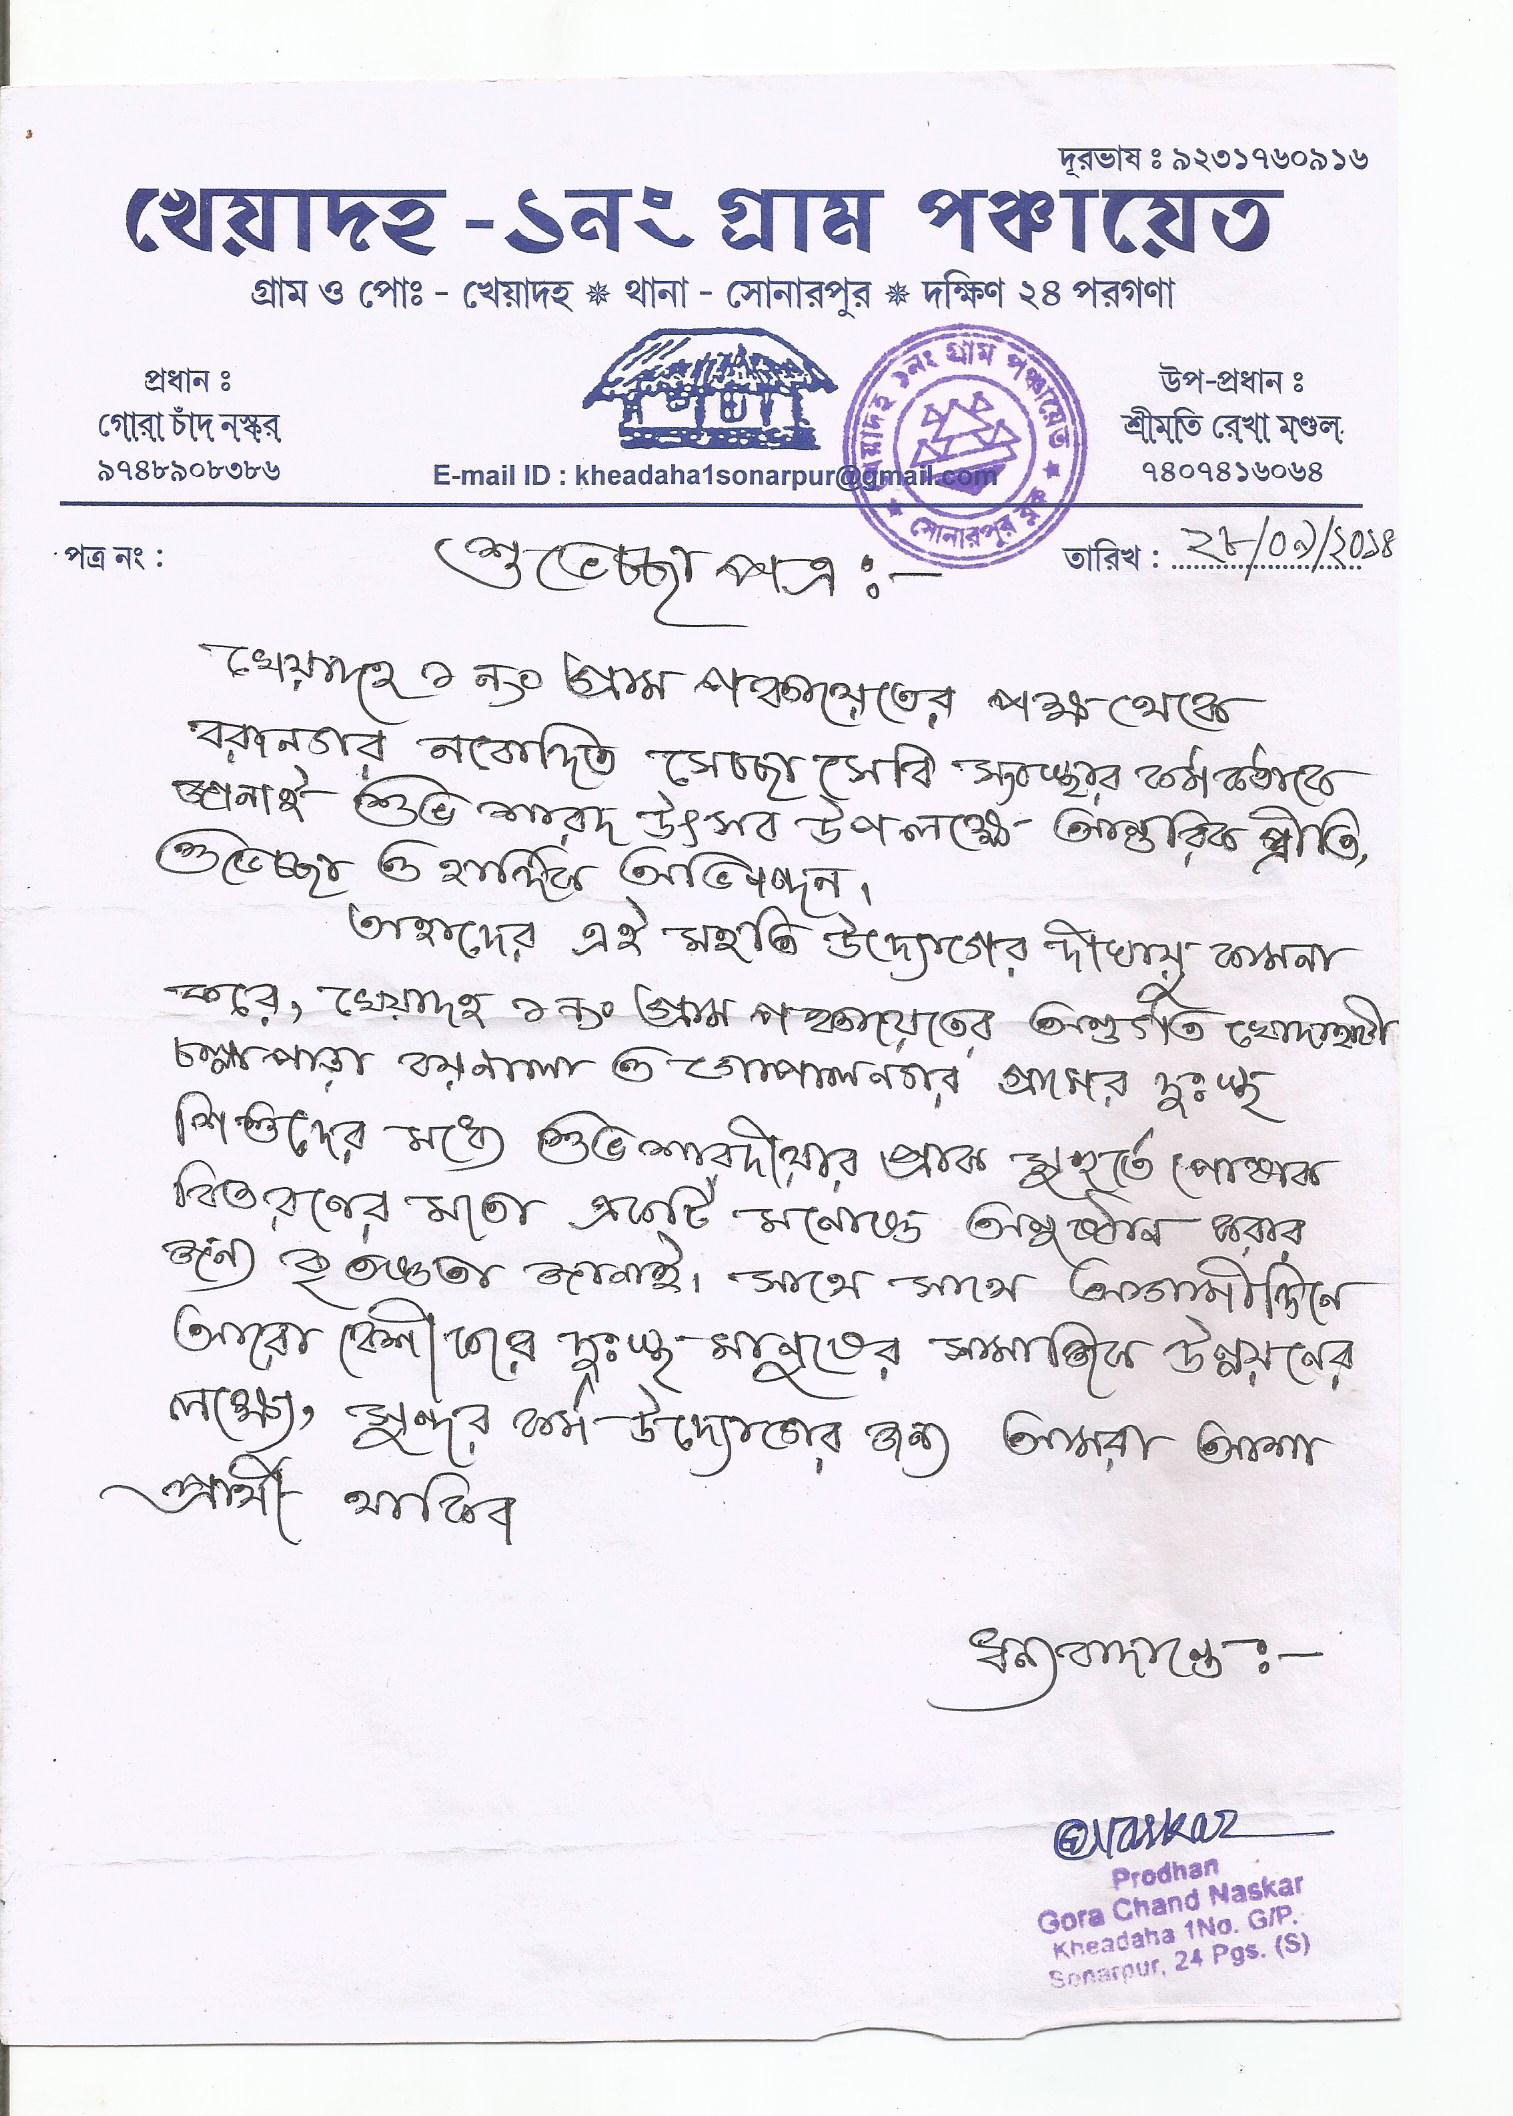 দূরভাষ ঃ ৯২৩১৭৬০৯১৬
খেয়াদহ - ১নং গ্রাম পঞ্চায়েত
গ্রাম ও পোঃ - খেয়াদহ ✵ থানা - সোনারপুর ✵ দক্ষিণ ২৪ পরগণা
প্রধান ঃ
গোরা চাঁদ নস্কর
৯৭৪৮৯০৮৩৮৬
খেয়াদহ ১নং গ্রাম পঞ্চায়েত
★ সোনারপুর ব্লক ★
উপ-প্রধান ঃ
শ্রীমতি রেখা মণ্ডল
৭৪০৭৪১৬০৬৪
E-mail ID : kheadaha1sonarpur@gmail.com
পত্র নং :
তারিখ : ২৮/০৯/২০১৪
শুভেচ্ছা পত্র ঃ-
খেয়াদহ ১ নং গ্রাম পঞ্চায়েতের পক্ষ থেকে
বরানগর নবোদিত সেচ্ছা সেবি সংস্থার
জানাই শুভ শারদ উৎসব উপলক্ষে আন্তরিক প্রীতি,
শুভেচ্ছা ও হার্দিক অভিনন্দন।
তাহাদের এই মহতি উদ্যোগের দীর্ঘায়ু কামনা
করে, খেয়াদহ ১ নং গ্রাম পঞ্চায়েতের অন্তর্গত
ও গোপালনগর গ্রামের দুঃস্থ
শিশুদের মধ্যে শুভ শারদীয়ার প্রাক মুহুর্তে পোষাক
বিতরণের মতো একটি মনোজ্ঞ অনুষ্ঠান করার
জন্য কৃতজ্ঞতা জানাই। সাথে সাথে আগামীদিনে
আরো বেশী করে দুঃস্থ মানুষের সামাজিক উন্নয়নের
লক্ষ্যে, সুন্দর কর্ম উদ্যোগের জন্য আমরা আশা
প্রার্থী থাকিব
ধন্যবাদান্তে ঃ-
GNaskar
Prodhan
Gora Chand Naskar
Kheadaha 1No. G/P.
Sonarpur, 24 Pgs. (S)